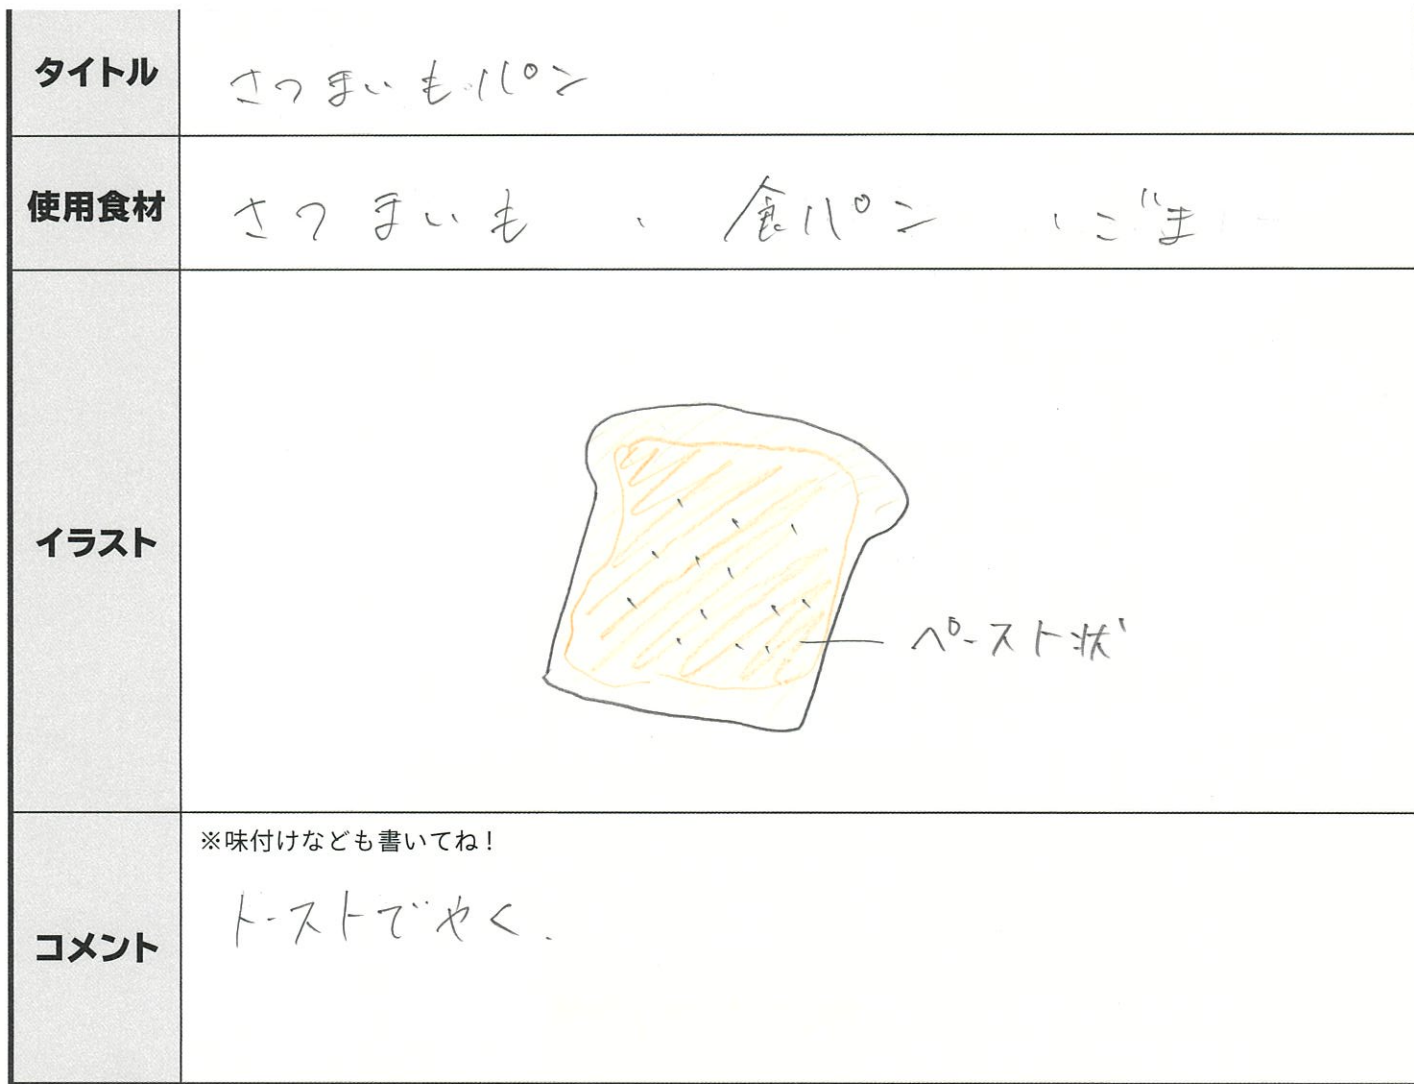 タイトル
さつまいもパン
使用食材
さつまいも 、 食パン 、ごま
イラスト
ペースト状
コメント
※味付けなども書いてね！
トーストでやく.